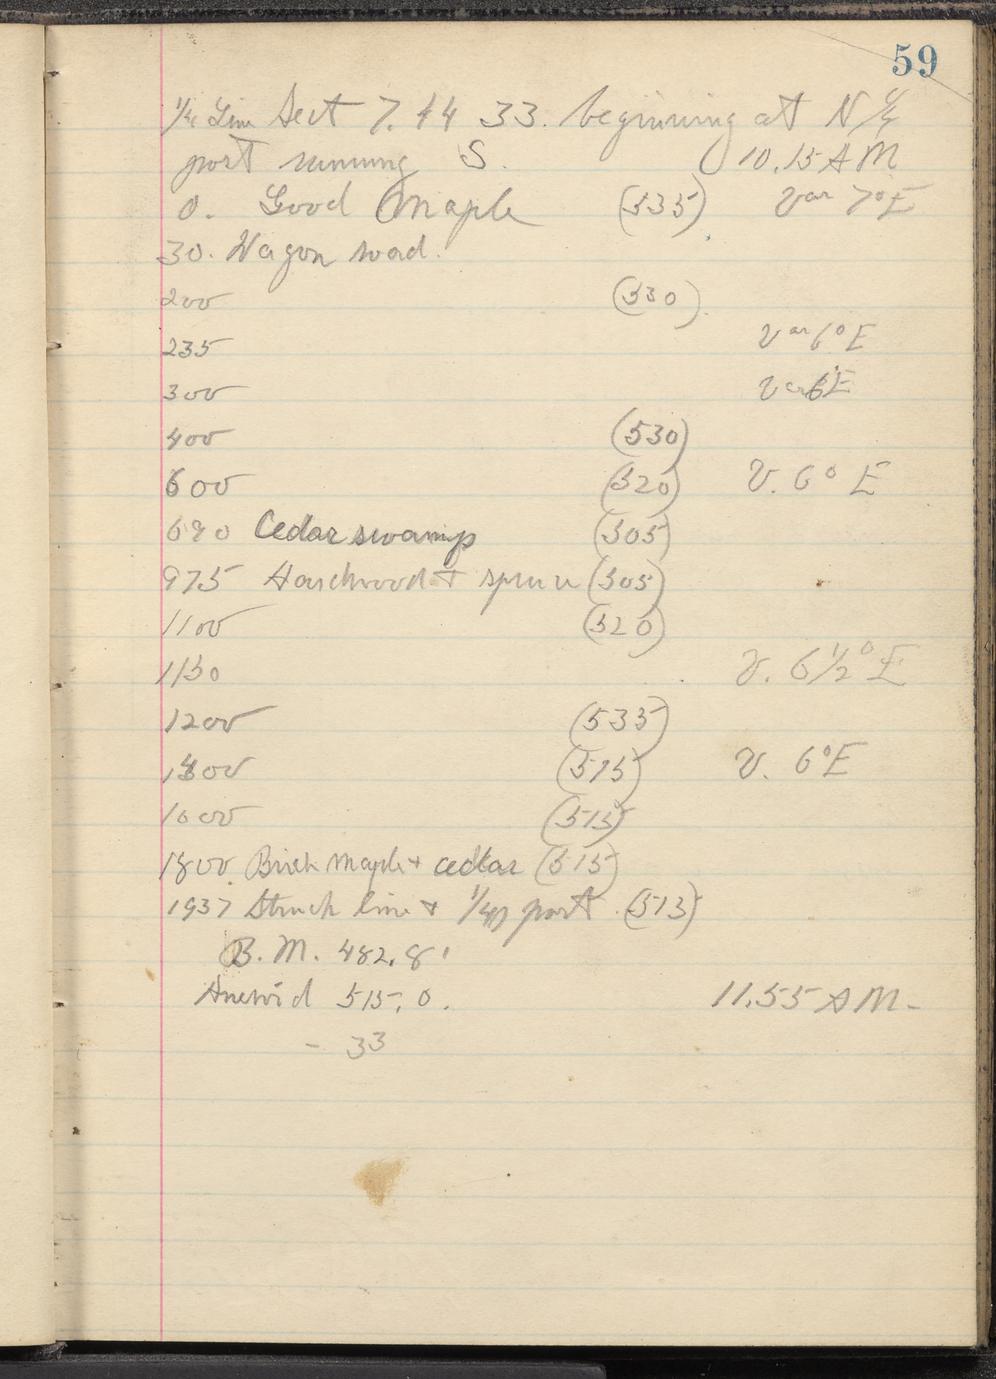 59
1/4 Line Sect 7. 44 33. beginning at N 1/4
post running S. 10.15 A M
0. Good Maple (535) Var 7° E
30. Wagon road.
200 (530)
235 Var 6° E
300 Var 6° E
400 (530)
600 (520) V. 6° E
690 Cedar swamp (505)
975 Hardwood + spruce (505)
1100 (520)
1150 V. 6 1/2° E
1200 (535)
1400 (515) V. 6° E
1600 (515)
1800 Birch maple + cedar (515)
1937 Struck line + 1/4 post (515)
B. M. 482.8'
Aneroid 515.0. 11.55 A M-
- 33